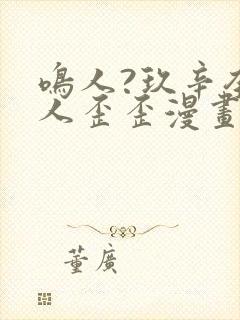 鳴人?玖辛
人歪歪漫畫
董廣